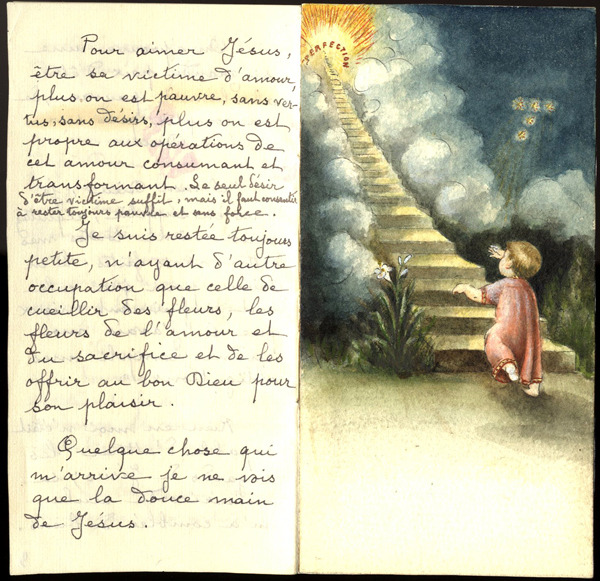 Pour aimer Jésus,
être sa victime d'amour,
plus on est pauvre, sans ver-
tus, sans désirs, plus on est
propre aux opérations de
cet amour consumant et
transformant. Le seul désir
d'être victime suffit, mais il faut consentir
à rester toujours pauvre et sans force.
Je suis restée toujours
petite, n'ayant d'autre
occupation que celle de
cueillir des fleurs, les
fleurs de l'amour et
du sacrifice et de les
offrir au bon Dieu pour
son plaisir.
Quelque chose qui
m'arrive je ne vois
que la douce main
de Jésus.
PERFECTION